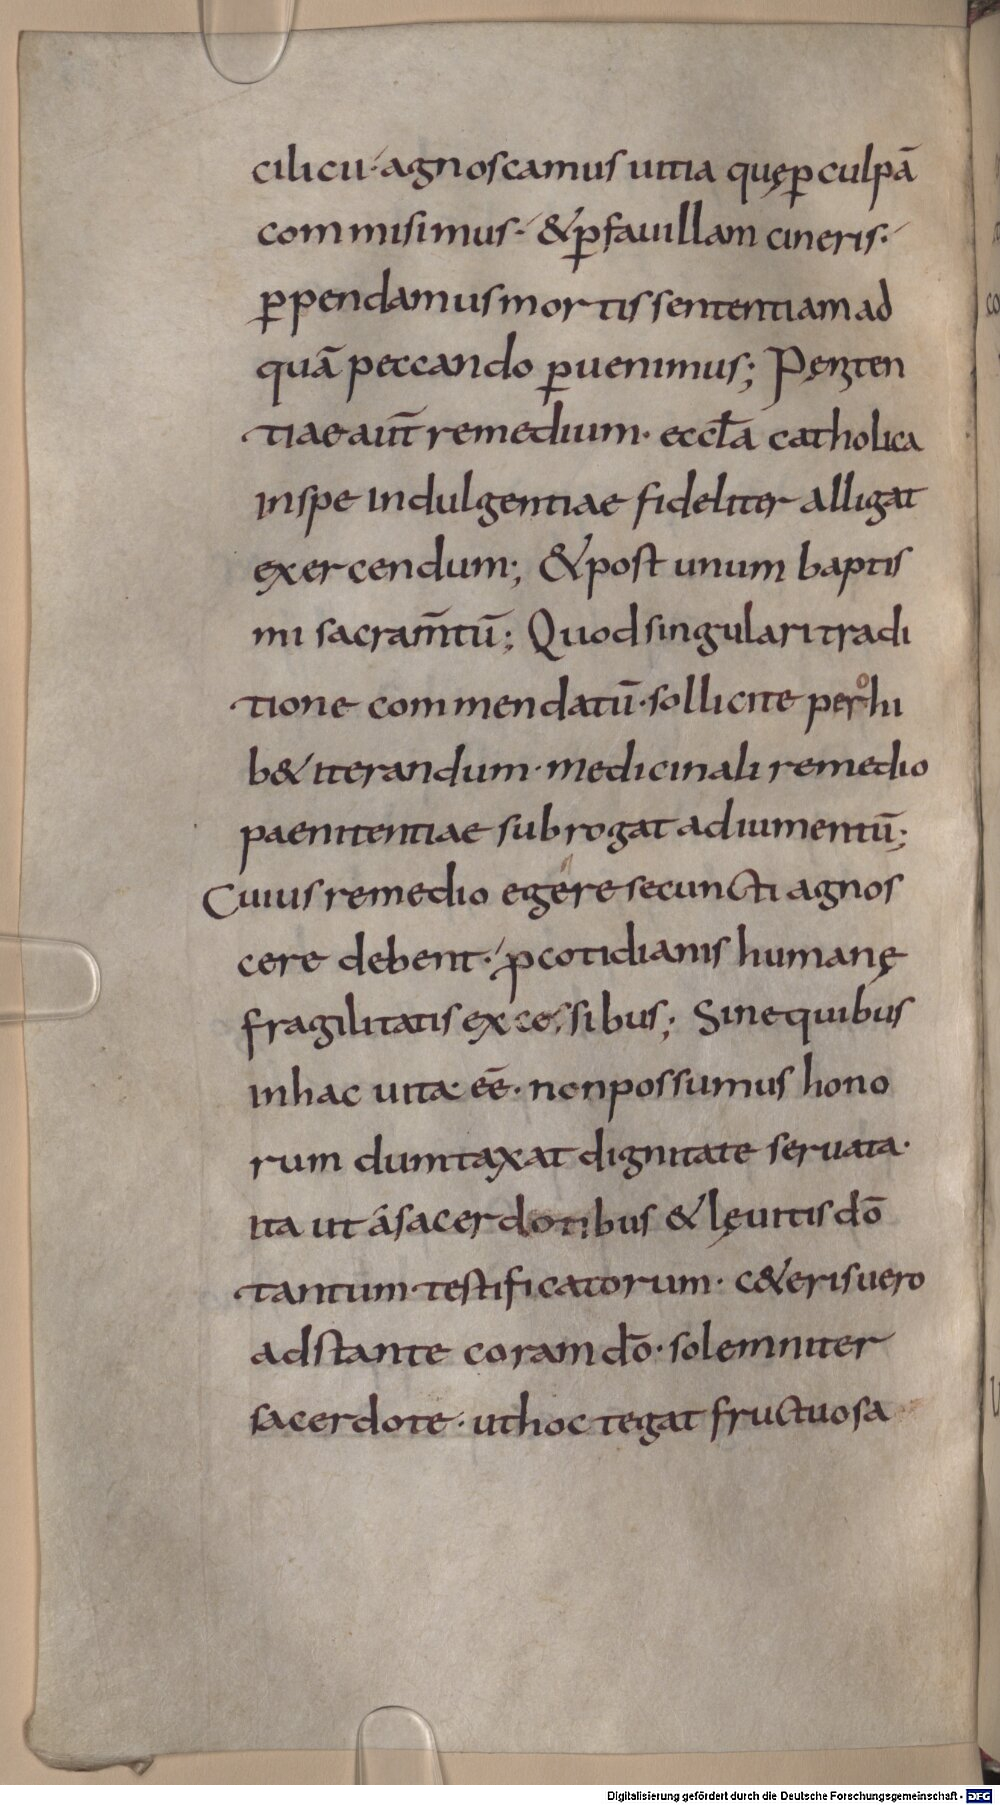 cilicii· agnoscamus uitia quę ꝑ culpā
commisimus· & ꝑ fauillam cineris·
ꝑpendamus mortis sententiam ad
quā peccando ꝑuenimus; Pęniten
tiae aut̄ remedium· eccl̄a catholica
in spe indulgentiae fideliter alligat
exercendum; & post unum baptis
mi sacram̄tū; Quod singulari tradi
tione commendatū· sollicite perhi
b& iterandum· medicinali remedio
paenitentiae subrogat adiumentū;
Cuius remedio egere se cuncti agnos
cere debent· ꝓ cotidianis humanę
fragilitatis excessibus; Sine quibus
in hac uita· eē· non possumus hono
rum dumtaxat dignitate seruata·
ita ut a sacerdotibus & lęuitis dō
tantum testificatorum· c&eris uero
adstante coram dō· solemniter
sacerdote· ut hoc tegat fructuosa
Digitalisierung gefördert durch die Deutsche Forschungsgemeinschaft - DFG